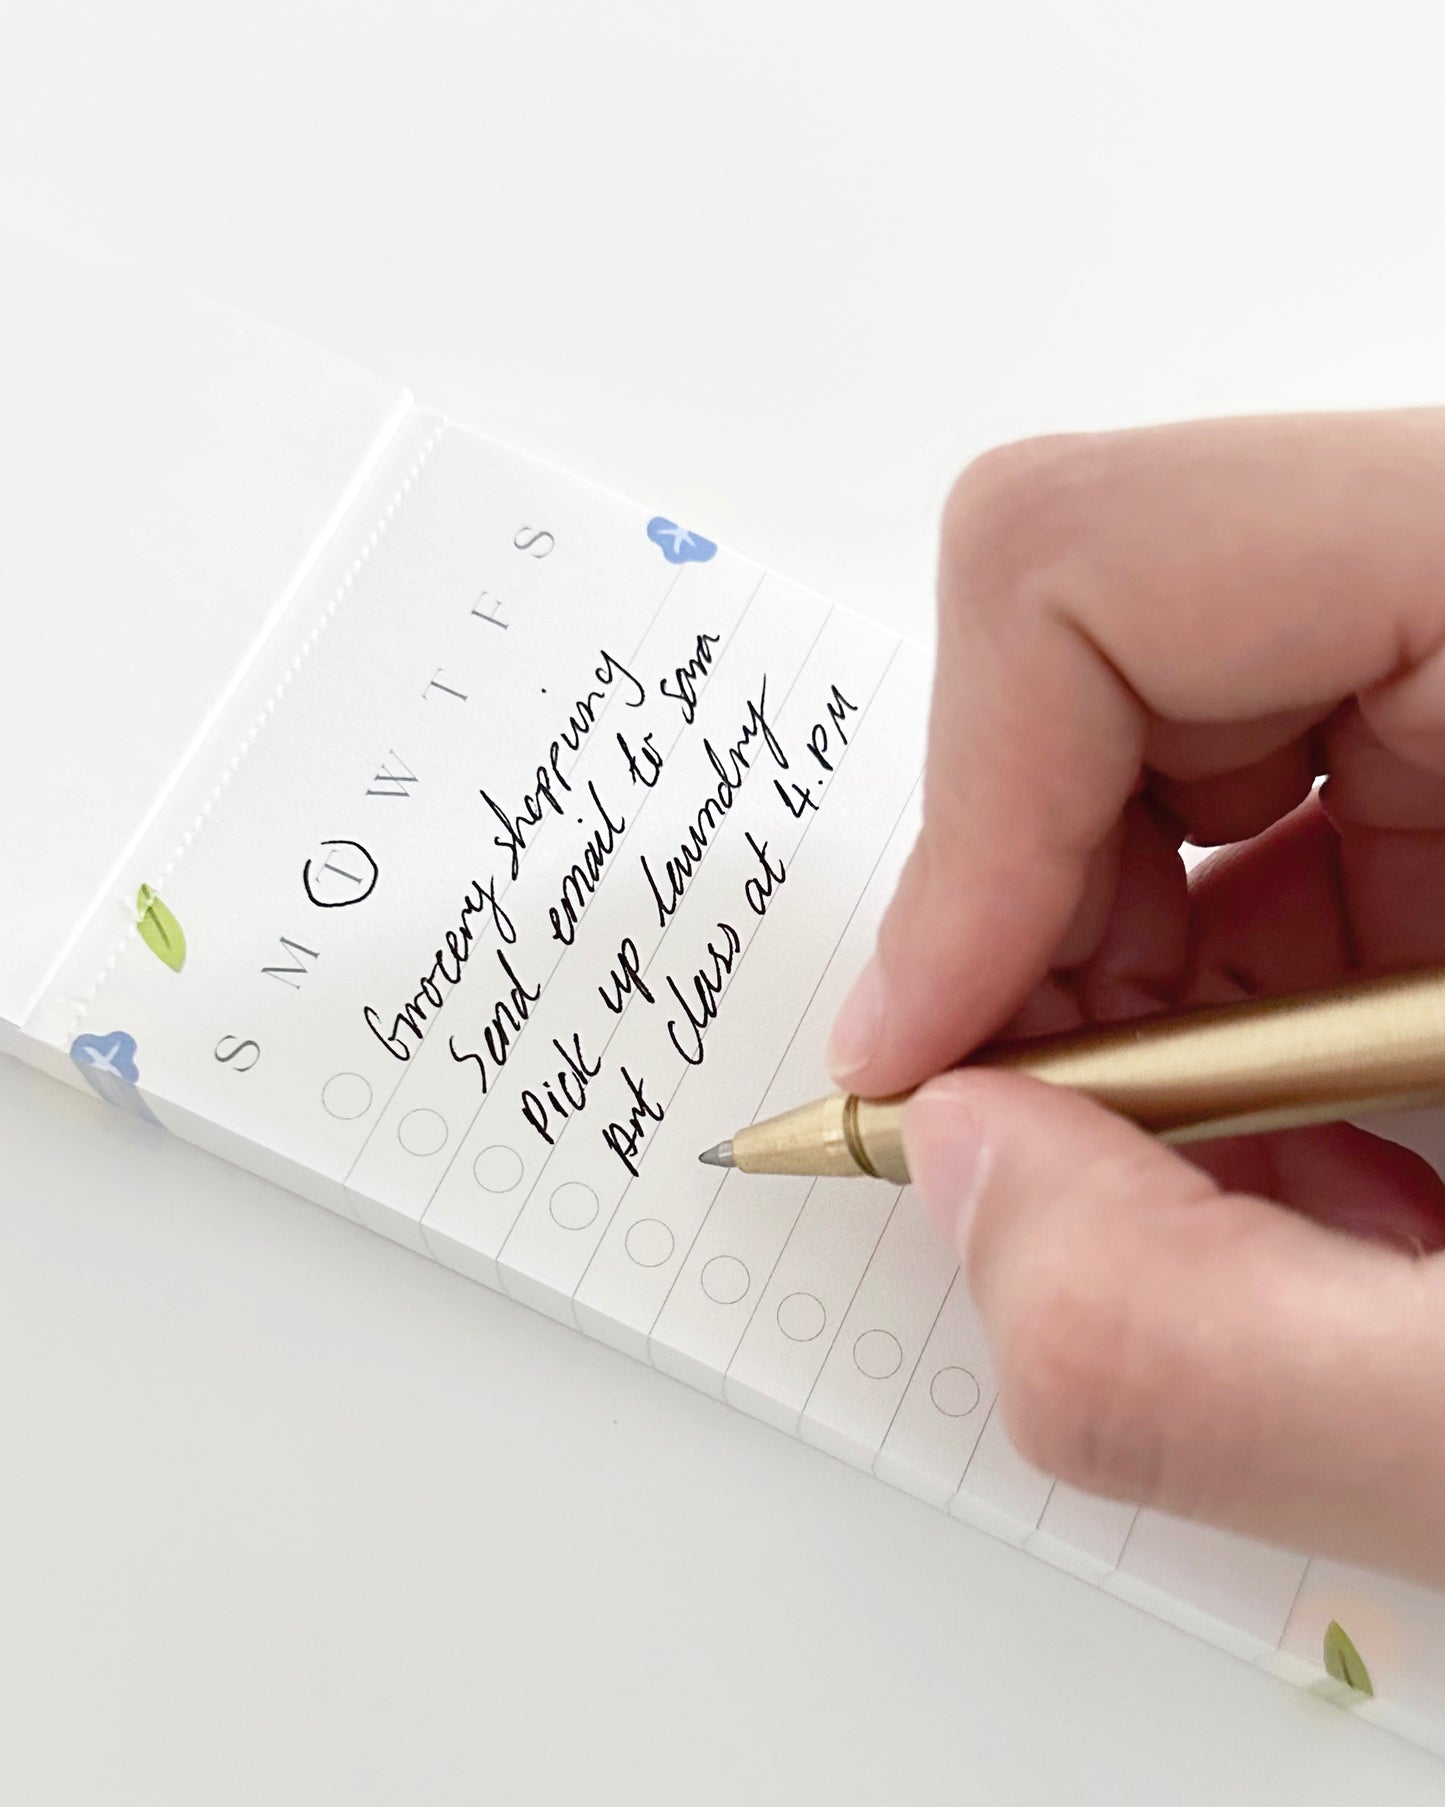 S M T W T F S
Grocery shopping
Send email to sara
Pick up laundry
Art class at 4.PM